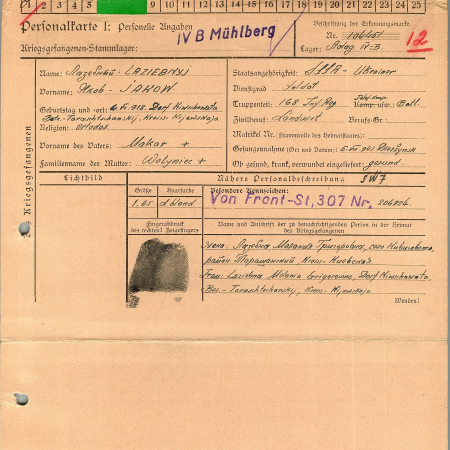 1 2 3 4 5 9 10 11 12 13 14 15 16 17 18 19 20 21 22 23 24 25
Personalkarte I: Personelle Angaben
IV B Mühlberg
Beschriftung der Erkennungsmarke
Kriegsgefangenen-Stammlager:
Nr. 106451
Lager: Stalag IV-B
12
Kriegsgefangenen
Name: Лазебный - LAZIEBNYJ
Vorname: Яков - JAKOW
Geburtstag und -ort: Dorf Kiwschowata
Kreis-Kijewskaja
Religion: Ortodox
Vorname des Vaters: Makar +
Familienname der Mutter: Wolyniec +
Staatsangehörigkeit: Ukrainer
Dienstgrad: Soldat
Truppenteil: 168 Inf. Reg. Komp. usw.: Batl.
Zivilberuf: Landwirt Berufs-Gr.:
Matrikel Nr. (Stammrolle des Heimatstaates):
Gefangennahme (Ort und Datum):
Ob gesund, krank, verwundet eingeliefert: gesund
Lichtbild
Nähere Personalbeschreibung
Größe
Haarfarbe
Besondere Kennzeichen:
1.65
d'blond
Von Front-St, 307 Nr. 206926
Fingerabdruck
des rechten! Zeigefingers
Name und Anschrift der zu benachrichtigenden Person in der Heimat
des Kriegsgefangenen
район Таращанский, Киевская
Frau: Grigorewna, Dorf Kiwschowata,
Kreis-Kijewskaja
Wenden!